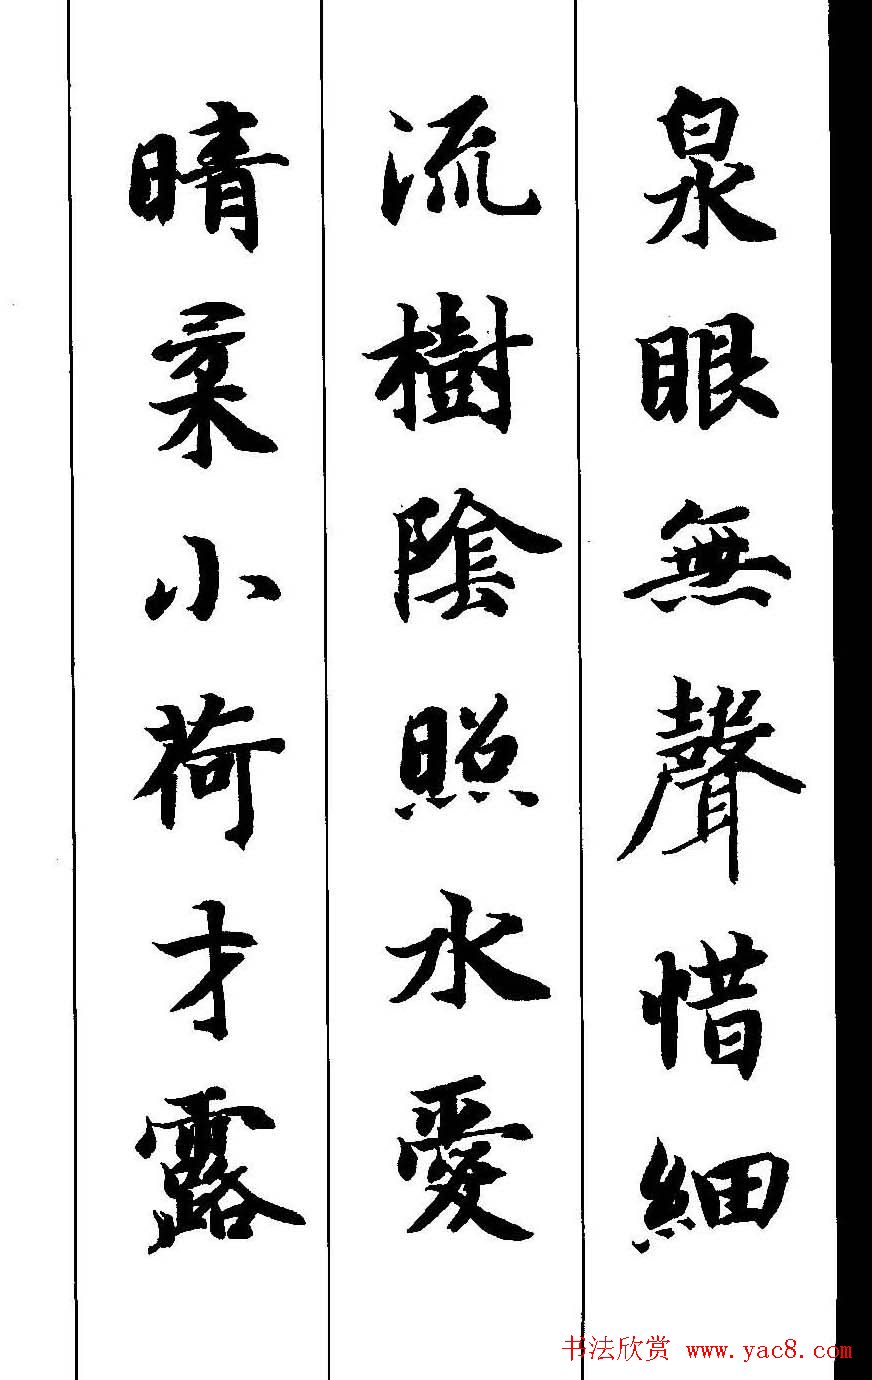 泉眼無聲惜細
流樹陰照水愛
晴柔小荷才露
书法欣赏 www.yac8.com